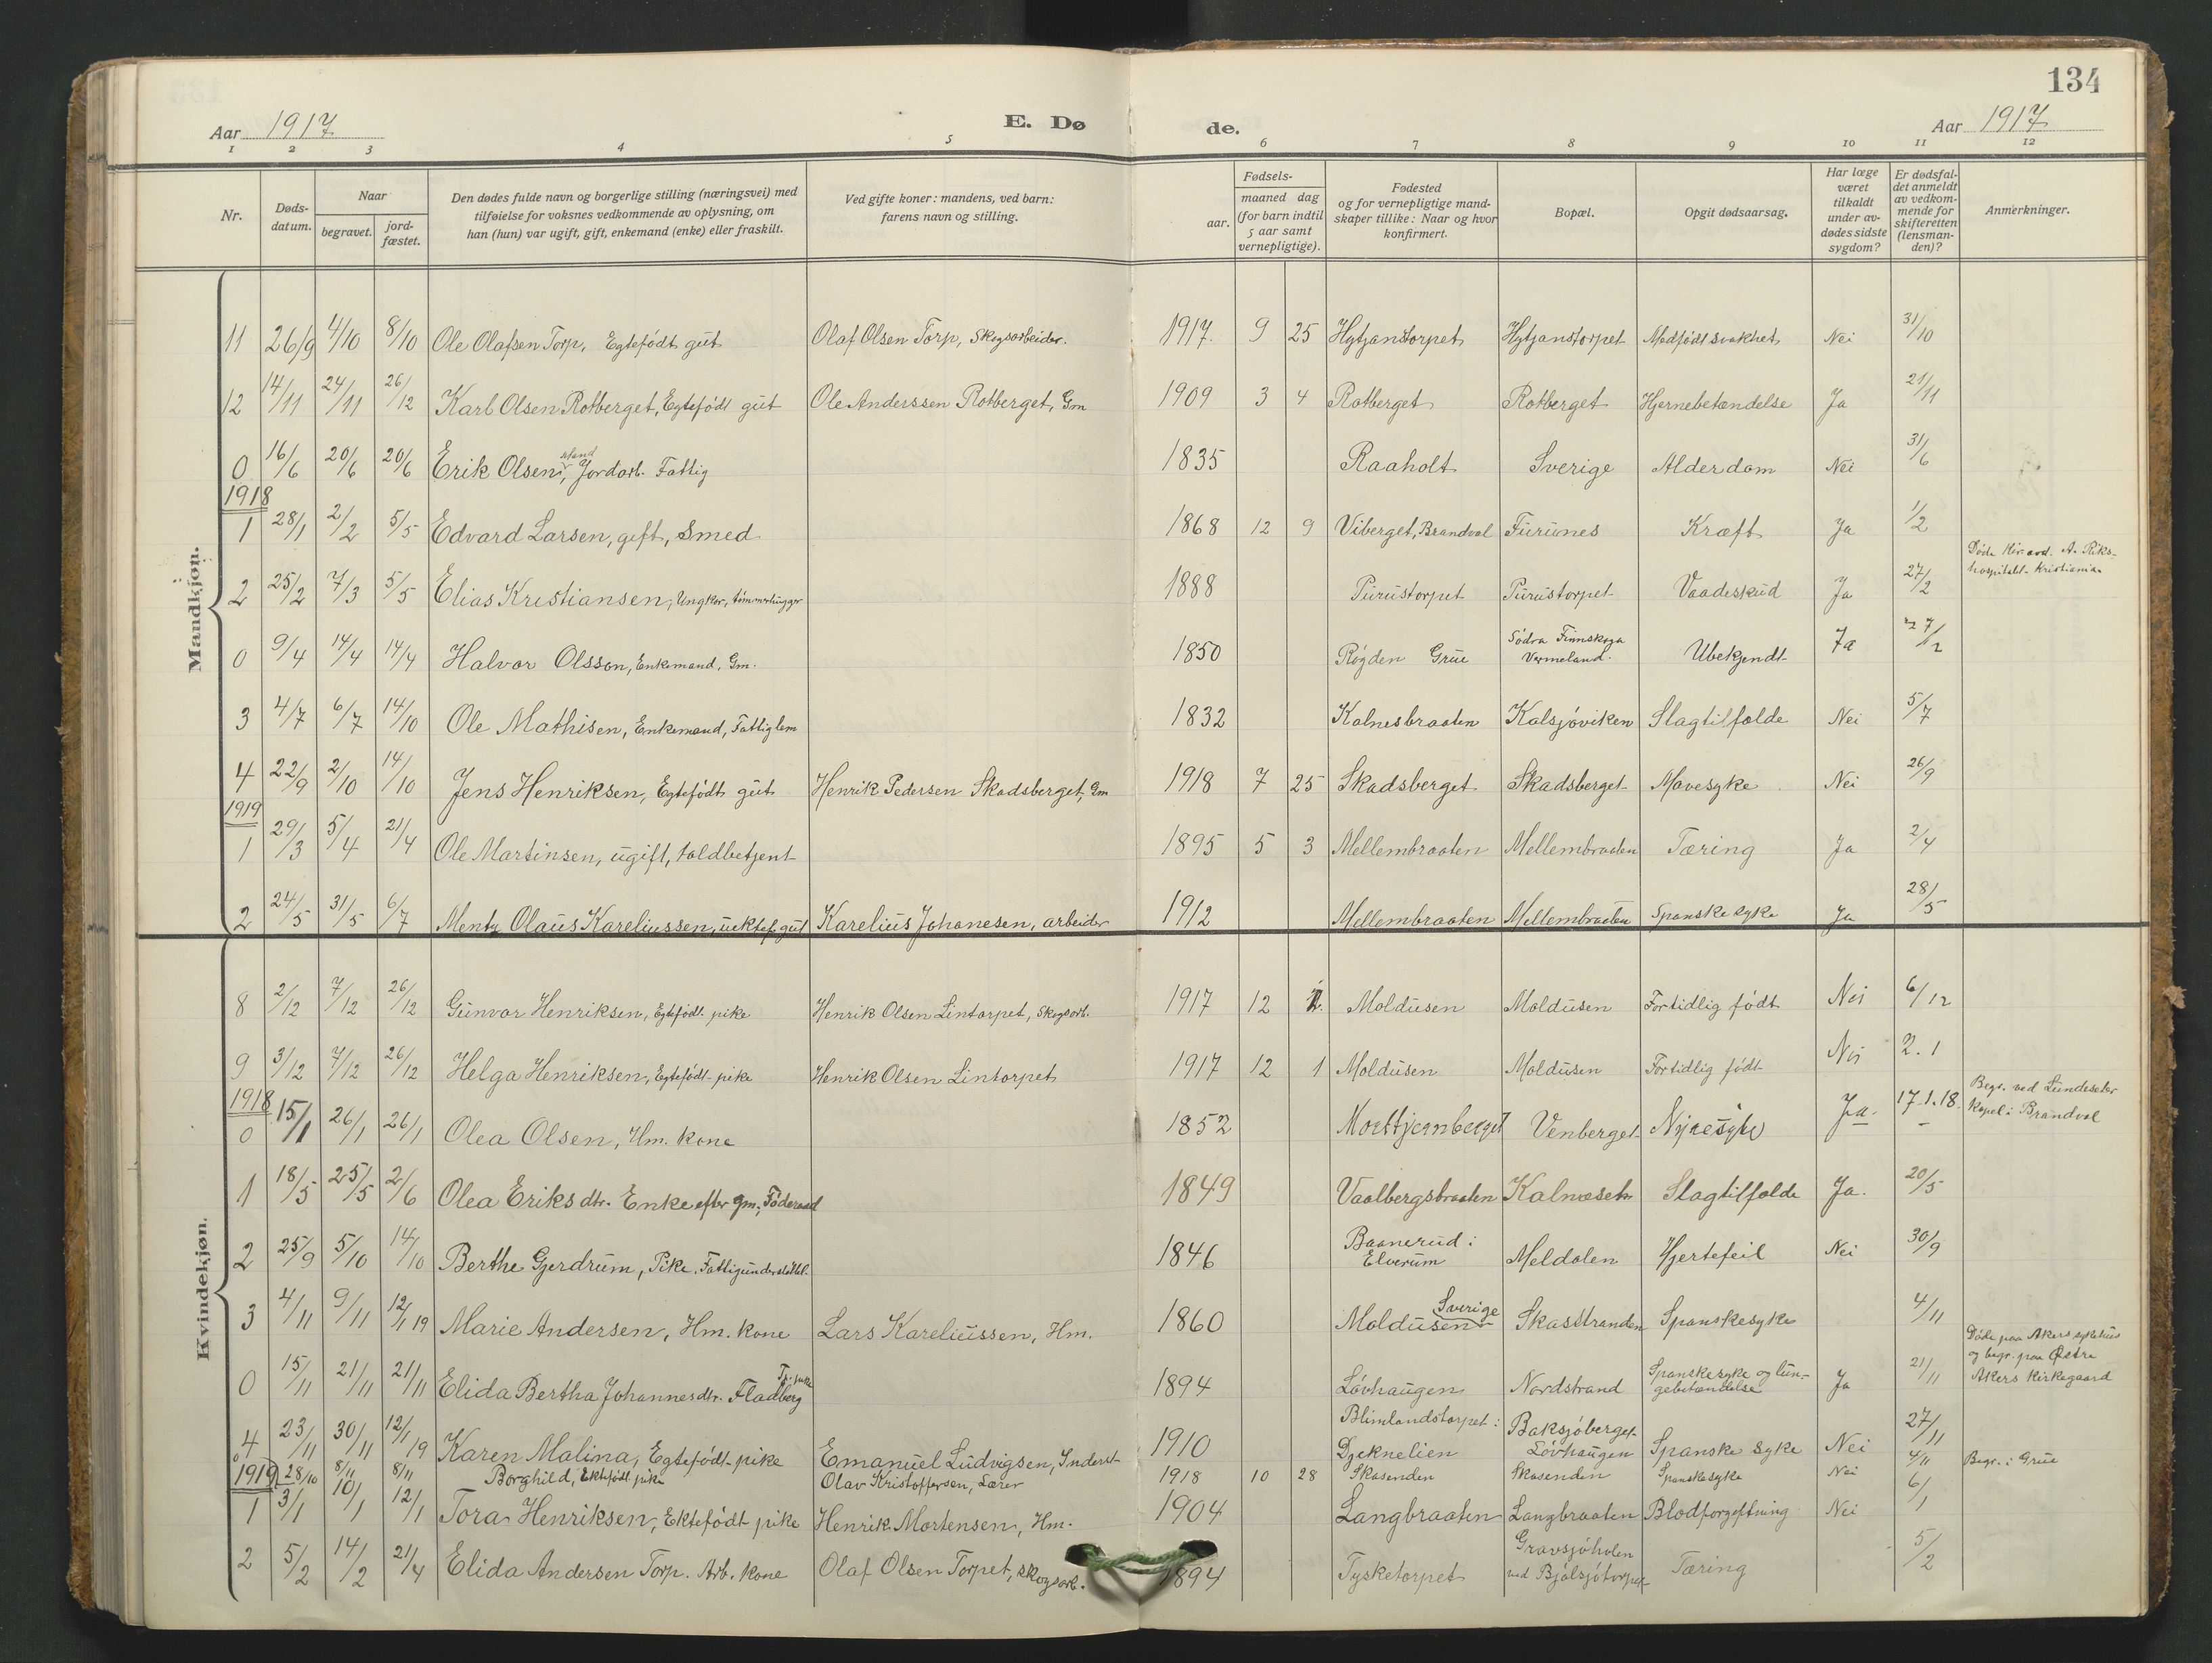 134
Aar 1917 E. Dø de. Aar 1917
1 2 3 4 5 6 7 8 9 10 11 12
Nr. Døds-datum. Naar begravet. jord-fæstet. Den dødes fulde navn og borgerlige stilling (næringsvei) med tilføielse for voksnes vedkommende av oplysning, om han (hun) var ugift, gift, enkemand (enke) eller fraskilt. Ved gifte koner: mandens, ved barn: farens navn og stilling. Fødsels- aar. maaned dag (for barn indtil 5 aar samt vernepligtige). Fødested og for vernepligtige mand-skaper tillike: Naar og hvor konfirmert. Bopæl. Opgit dødsaarsag. Har læge været tilkaldt under av-dødes sidste sygdom? Er dødsfal-det anmeldt av vedkom-mende for skifteretten (lensman-den)? Anmerkninger.
Mandkjøn.
11 26/9 4/10 8/10 Ole Olafsen Torp, Egtefödt gut Olaf Olsen Torp, Skogsarbeider. 1917. 9 25 Hytjanstorpet Hytjanstorpet Medfödt svakhet Nei 31/10
12 14/11 24/11 26/12 Karl Olsen Rotberget, Egtefödt gut Ole Anderssen Rotberget, Gm 1909 3 4 Rotberget Rotberget Hjernebetændelse Ja 21/11
0 16/6 20/6 20/6 Erik Olsen, Jordarb. Fattig 1835 Raaholt Sverige Alderdom Nei 31/6
1918
1 28/1 2/2 5/5 Edvard Larsen, gift, Smed 1868 12 9 Viberget, Brandval Furunes Kræft Ja 1/2
2 25/2 7/3 5/5 Elias Kristiansen, Ungkar, tömmerhugger 1888 Purustorpet Purustorpet Vaadeskud Ja 27/2 Döde Kir. avd. A. Riks-hospitalet. Kristiania.
0 9/4 14/4 14/4 Halvor Olsson, Enkemand, Gm. 1850 Rögden Grue Södra Finnskoga Vermeland. Ubekjendt Ja 27/2
3 4/7 6/7 14/10 Ole Mathisen, Enkemand, Fattiglem 1832 Kalnesbraaten Kalsjöviken Slagtilfælde Nei 5/7
4 22/9 2/10 14/10 Jens Henriksen, Egtefödt gut Henrik Pedersen Skadsberget, Gm 1918 7 25 Skadsberget Skadsberget Mavesyke Nei 26/9
1919
1 29/3 5/4 21/4 Ole Martinsen, ugift, toldbetjent 1895 5 3 Mellembraaten Mellembraaten Tæring Ja 2/4
2 24/5 31/5 6/7 Mentz Olaus Kareliussen, uektef. gut Karelius Johanesen, arbeider 1912 Mellembraaten Mellembraaten Spanske syke Ja 28/5
Kvindekjøn.
8 2/12 7/12 26/12 Gunvor Henriksen, Egtefödt pike Henrik Olsen Lintorpet, Skogsarb. 1917 12 Moldusen Moldusen Fortidlig födt Nei 6/12
9 3/12 7/12 26/12 Helga Henriksen, Egtefödt pike Henrik Olsen Lintorpet 1917 12 1 Moldusen Moldusen Fortidlig födt Nei 2.1
1918
0 15/1 26/1 26/1 Olea Olsen, Hm. kone 1852 Morttjernberget Venberget Nyresyke Ja. 17.1.18. Begr. ved Lundeseter kapel i Brandval
1 18/5 25/5 2/6 Olea Eriksdtr. Enke efter gm., Föderaad 1849 Vaalbergsbraaten Kalnæset Slagtilfælde Ja. 20/5
2 25/9 5/10 14/10 Berthe Gjerdrum, Pike. Fattigunderstöttet. 1846 Baanerud i Elverum Meldalen Hjertefeil Nei 30/9
3 4/11 9/11 12/1 19 Marie Andersen, Hm. kone Lars Kareliussen, Hm. 1860 Moldusen Sverige Skasstranden Spanskesyke 4/11
0 15/11 21/11 21/11 Elida Bertha Johannesdtr. Fladberg Tj. pike 1894 Lövhaugen Nordstrand Spanskesyke og lun-gebetændelse Ja 21/11 Döde paa Akers sykehus og begr. paa Østre Akers kirkegaard
4 23/11 30/11 12/1 19 Karen Malina, Egtefödt pike Emanuel Ludvigsen, Inderst 1910 Blimlandstorpet i Djeknelien Baksjöberget Lövhaugen Spanske syke Nei 27/11
28/10 8/11 8/11 Borghild, Ektefödt pike Olav Kristoffersen, Lærer 1918 10 28 Skasenden Skasenden Spanskesyke Nei 4/11 Begr. i Grue
1919
1 3/1 10/1 12/1 Tora Henriksen, Ektefödt pike Henrik Mortensen, Hm. 1904 Langbraaten Langbraaten Blodforgiftning Nei 6/1
2 5/2 14/2 21/4 Elida Andersen Torp. Arb. kone Olaf Olsen Torpet, skogsarb. 1894 Tysketorpet Gravsjöholen ved Bjölsjötorpet Tæring 5/2